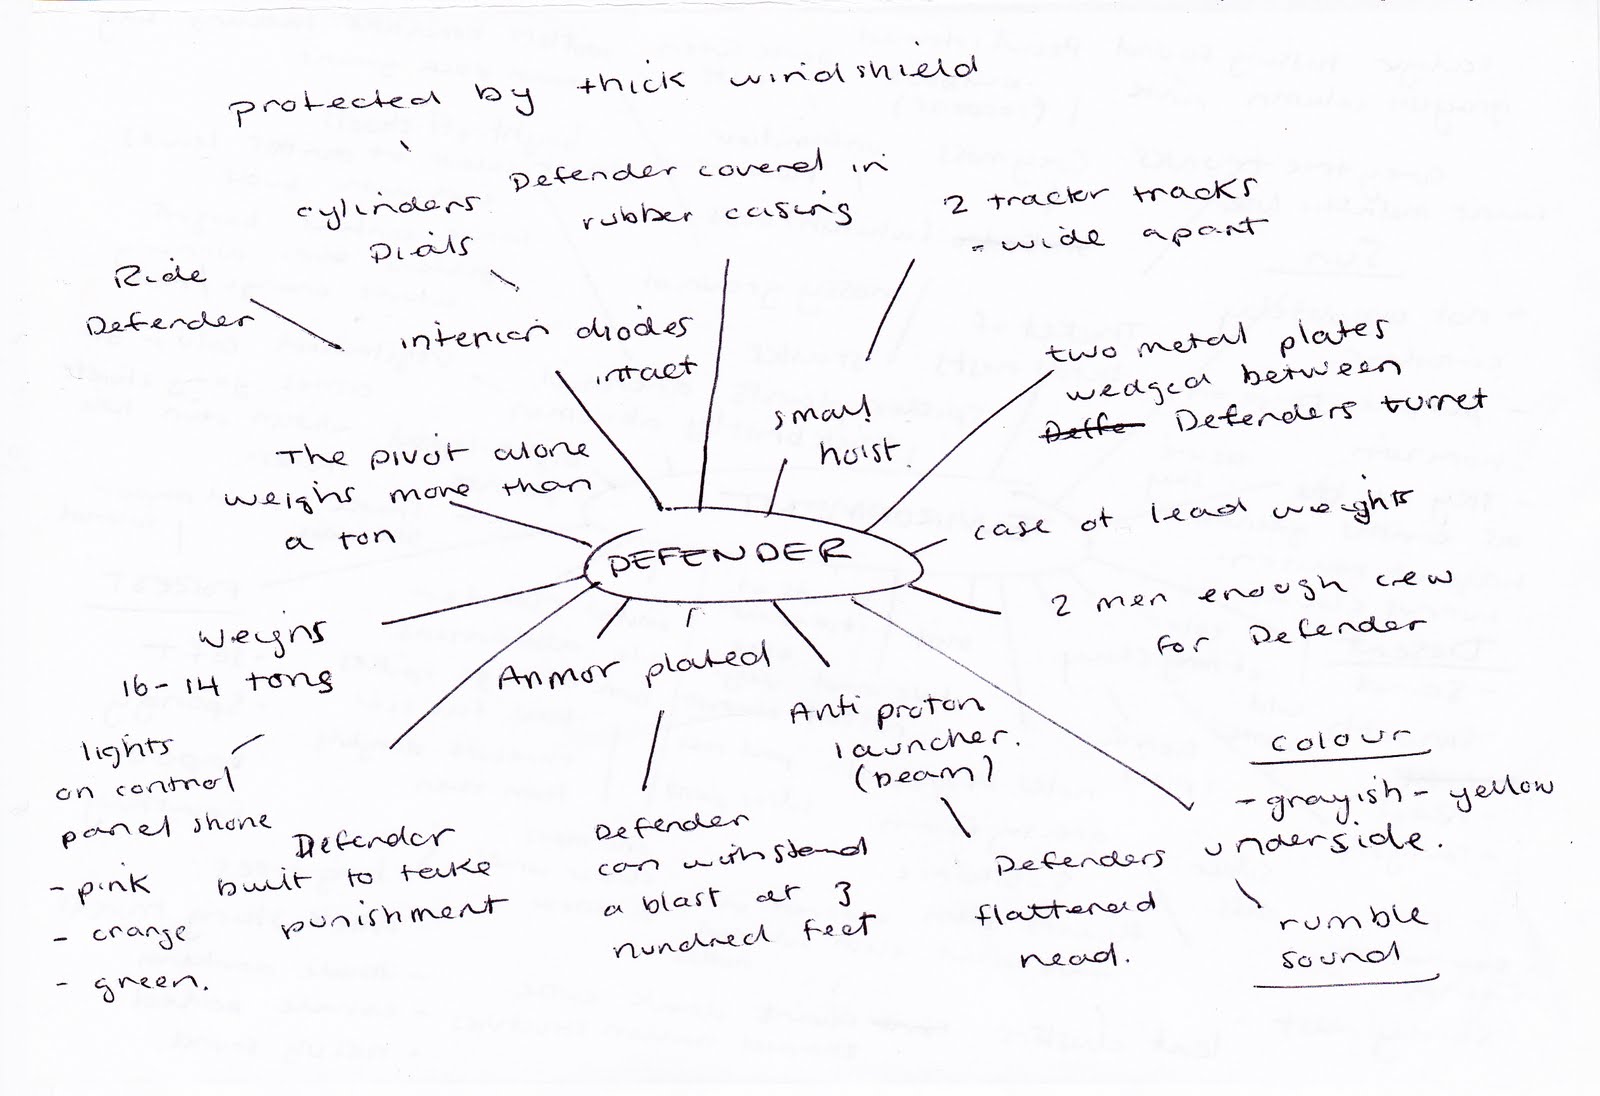 protected by thick windshield
cylinders
Dials
Defender covered in
rubber casing
2 tractor tracks
- wide apart
Ride
Defender
interior diodes
intact
small
hoist.
two metal plates
wedged between
Deffe Defenders turret
The pivot alone
weighs more than
a ton
case of lead weights
DEFENDER
2 men enough crew
for Defender
weighs
16-14 tons
Armor plated
Anti proton
launcher.
(beam)
lights
on control
panel shone
- pink
- orange
- green.
Defender
built to take
punishment
Defender
can withstand
a blast at 3
hundred feet
Defenders
flattened
head.
colour
- grayish - yellow
underside.
rumble
sound